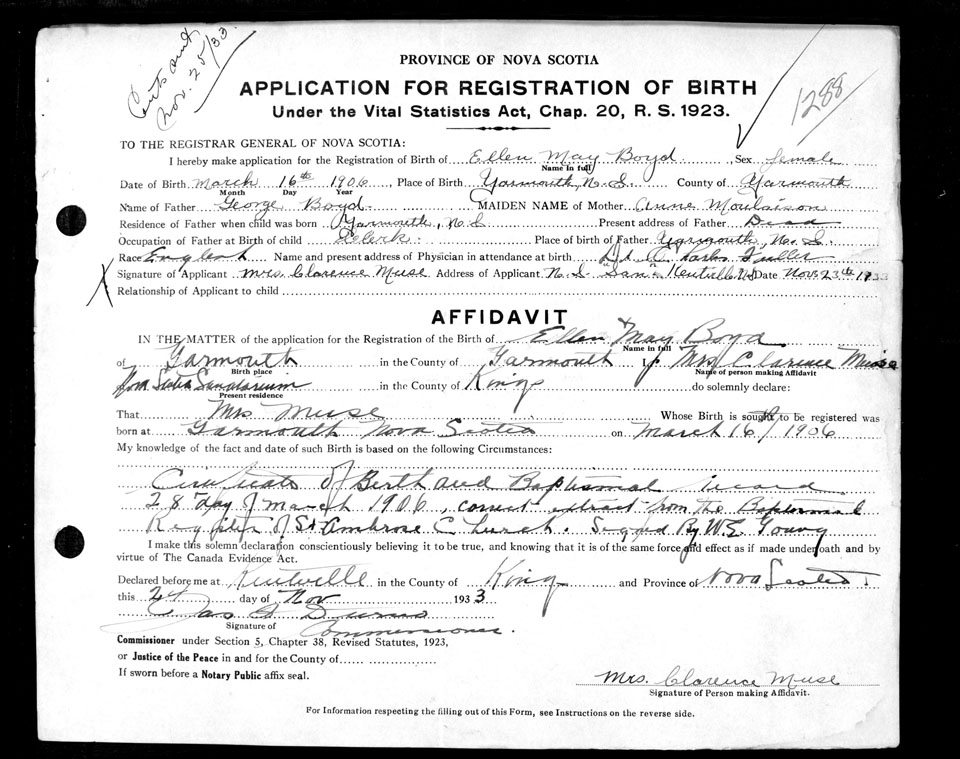 Nov. 25/33
1288
PROVINCE OF NOVA SCOTIA
APPLICATION FOR REGISTRATION OF BIRTH
Under the Vital Statistics Act, Chap. 20, R. S. 1923.
TO THE REGISTRAR GENERAL OF NOVA SCOTIA:
I hereby make application for the Registration of Birth of Ellen May Boyd Sex female
Name in full
Date of Birth March 16th 1906, Place of Birth Yarmouth, N. S. County of Yarmouth
Month Day Year
Name of Father George Boyd MAIDEN NAME of Mother Anne Moulaison
Residence of Father when child was born Yarmouth, N. S Present address of Father Dead
Occupation of Father at Birth of child Clerk Place of birth of Father Yarmouth, N. S.
Race English Name and present address of Physician in attendance at birth Dr. Fuller
Signature of Applicant Mrs. Clarence Muse Address of Applicant N. S. San. Kentville NS Date Nov. 23rd 1933
Relationship of Applicant to child
AFFIDAVIT
IN THE MATTER of the application for the Registration of the Birth of Ellen May Boyd
Name in full
of Yarmouth in the County of Yarmouth I, Mrs Clarence Muise
Birth place Name of person making Affidavit
Nova Scotia Sanatorium in the County of Kings do solemnly declare:
Present residence
That Mrs Muse Whose Birth is sought to be registered was
born at Yarmouth Nova Scotia on March 16th 1906
My knowledge of the fact and date of such Birth is based on the following Circumstances:
Certificate of Birth and Baptismal record
28 day of March 1906, correct extract from the Baptismal
Register of St Ambrose Church. Signed By W. E. Young
I make this solemn declaration conscientiously believing it to be true, and knowing that it is of the same force and effect as if made under oath and by
virtue of The Canada Evidence Act.
Declared before me at Kentville in the County of Kings and Province of Nova Scotia
this 24 day of Nov 1933
Signature of Commissioner.
Commissioner under Section 5, Chapter 38, Revised Statutes, 1923,
or Justice of the Peace in and for the County of
If sworn before a Notary Public affix seal.
Mrs. Clarence Muse
Signature of Person making Affidavit.
For Information respecting the filling out of this Form, see Instructions on the reverse side.